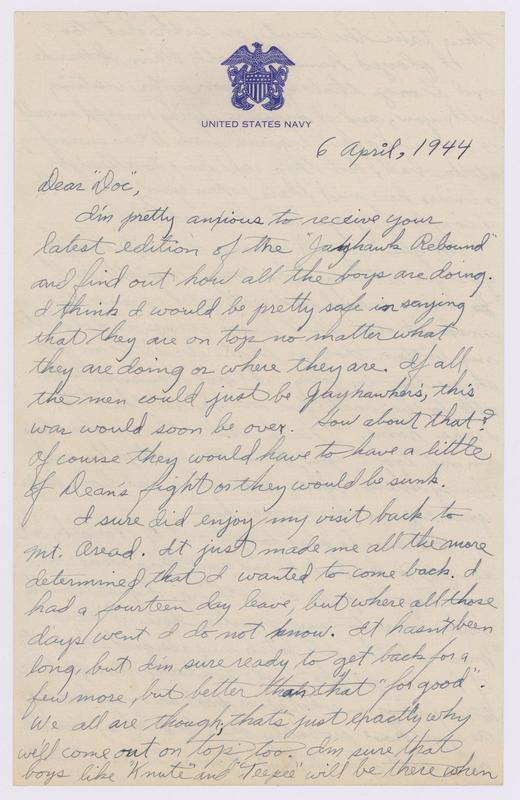 UNITED STATES NAVY
6 April, 1944
Dear "Doc",
I'm pretty anxious to receive your
latest edition of the "Jayhawk Rebound"
and find out how all the boys are doing.
I think I would be pretty safe in saying
that they are on top no matter what
they are doing or where they are. If all
the men could just be Jayhawkers, this
war would soon be over. How about that?
Of course they would have to have a little
of Dean's fight or they would be sunk.
I sure did enjoy my visit back to
Mt. Oread. It just made me all the more
determined that I wanted to come back. I
had a fourteen day leave, but where all those
days went I do not know. It hasn't been
long, but I'm sure ready to get back for a
few more, but better than that "for good".
We all are though, that's just exactly why
we'll come out on top too. I'm sure that
boys like "Knute" and "Teepee" will be there when